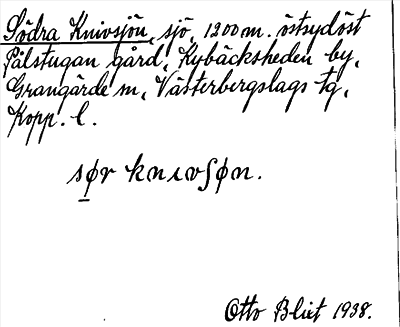 Södra Knivsjön, sjö, 1200 m. östsydöst
Pålstugan gård, Kybäcksheden by,
Grangärde sn, Västerbergslags tg,
Kopp. l.
sør knıvʃøn.
Otto Blixt 1938.